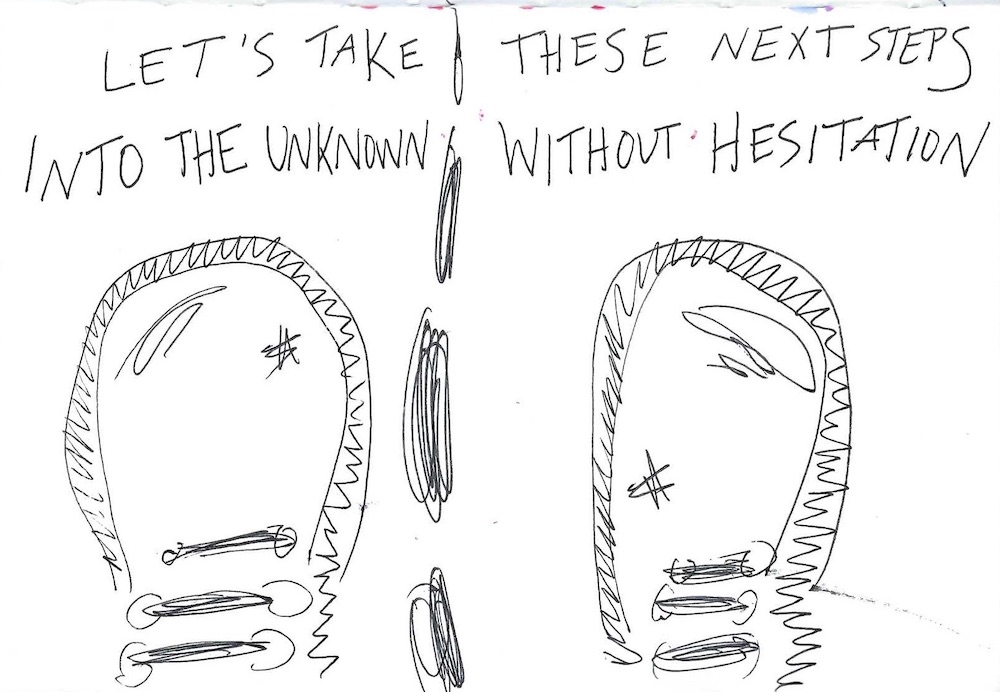 LET'S TAKE THESE NEXT STEPS
INTO THE UNKNOWN WITHOUT HESITATION